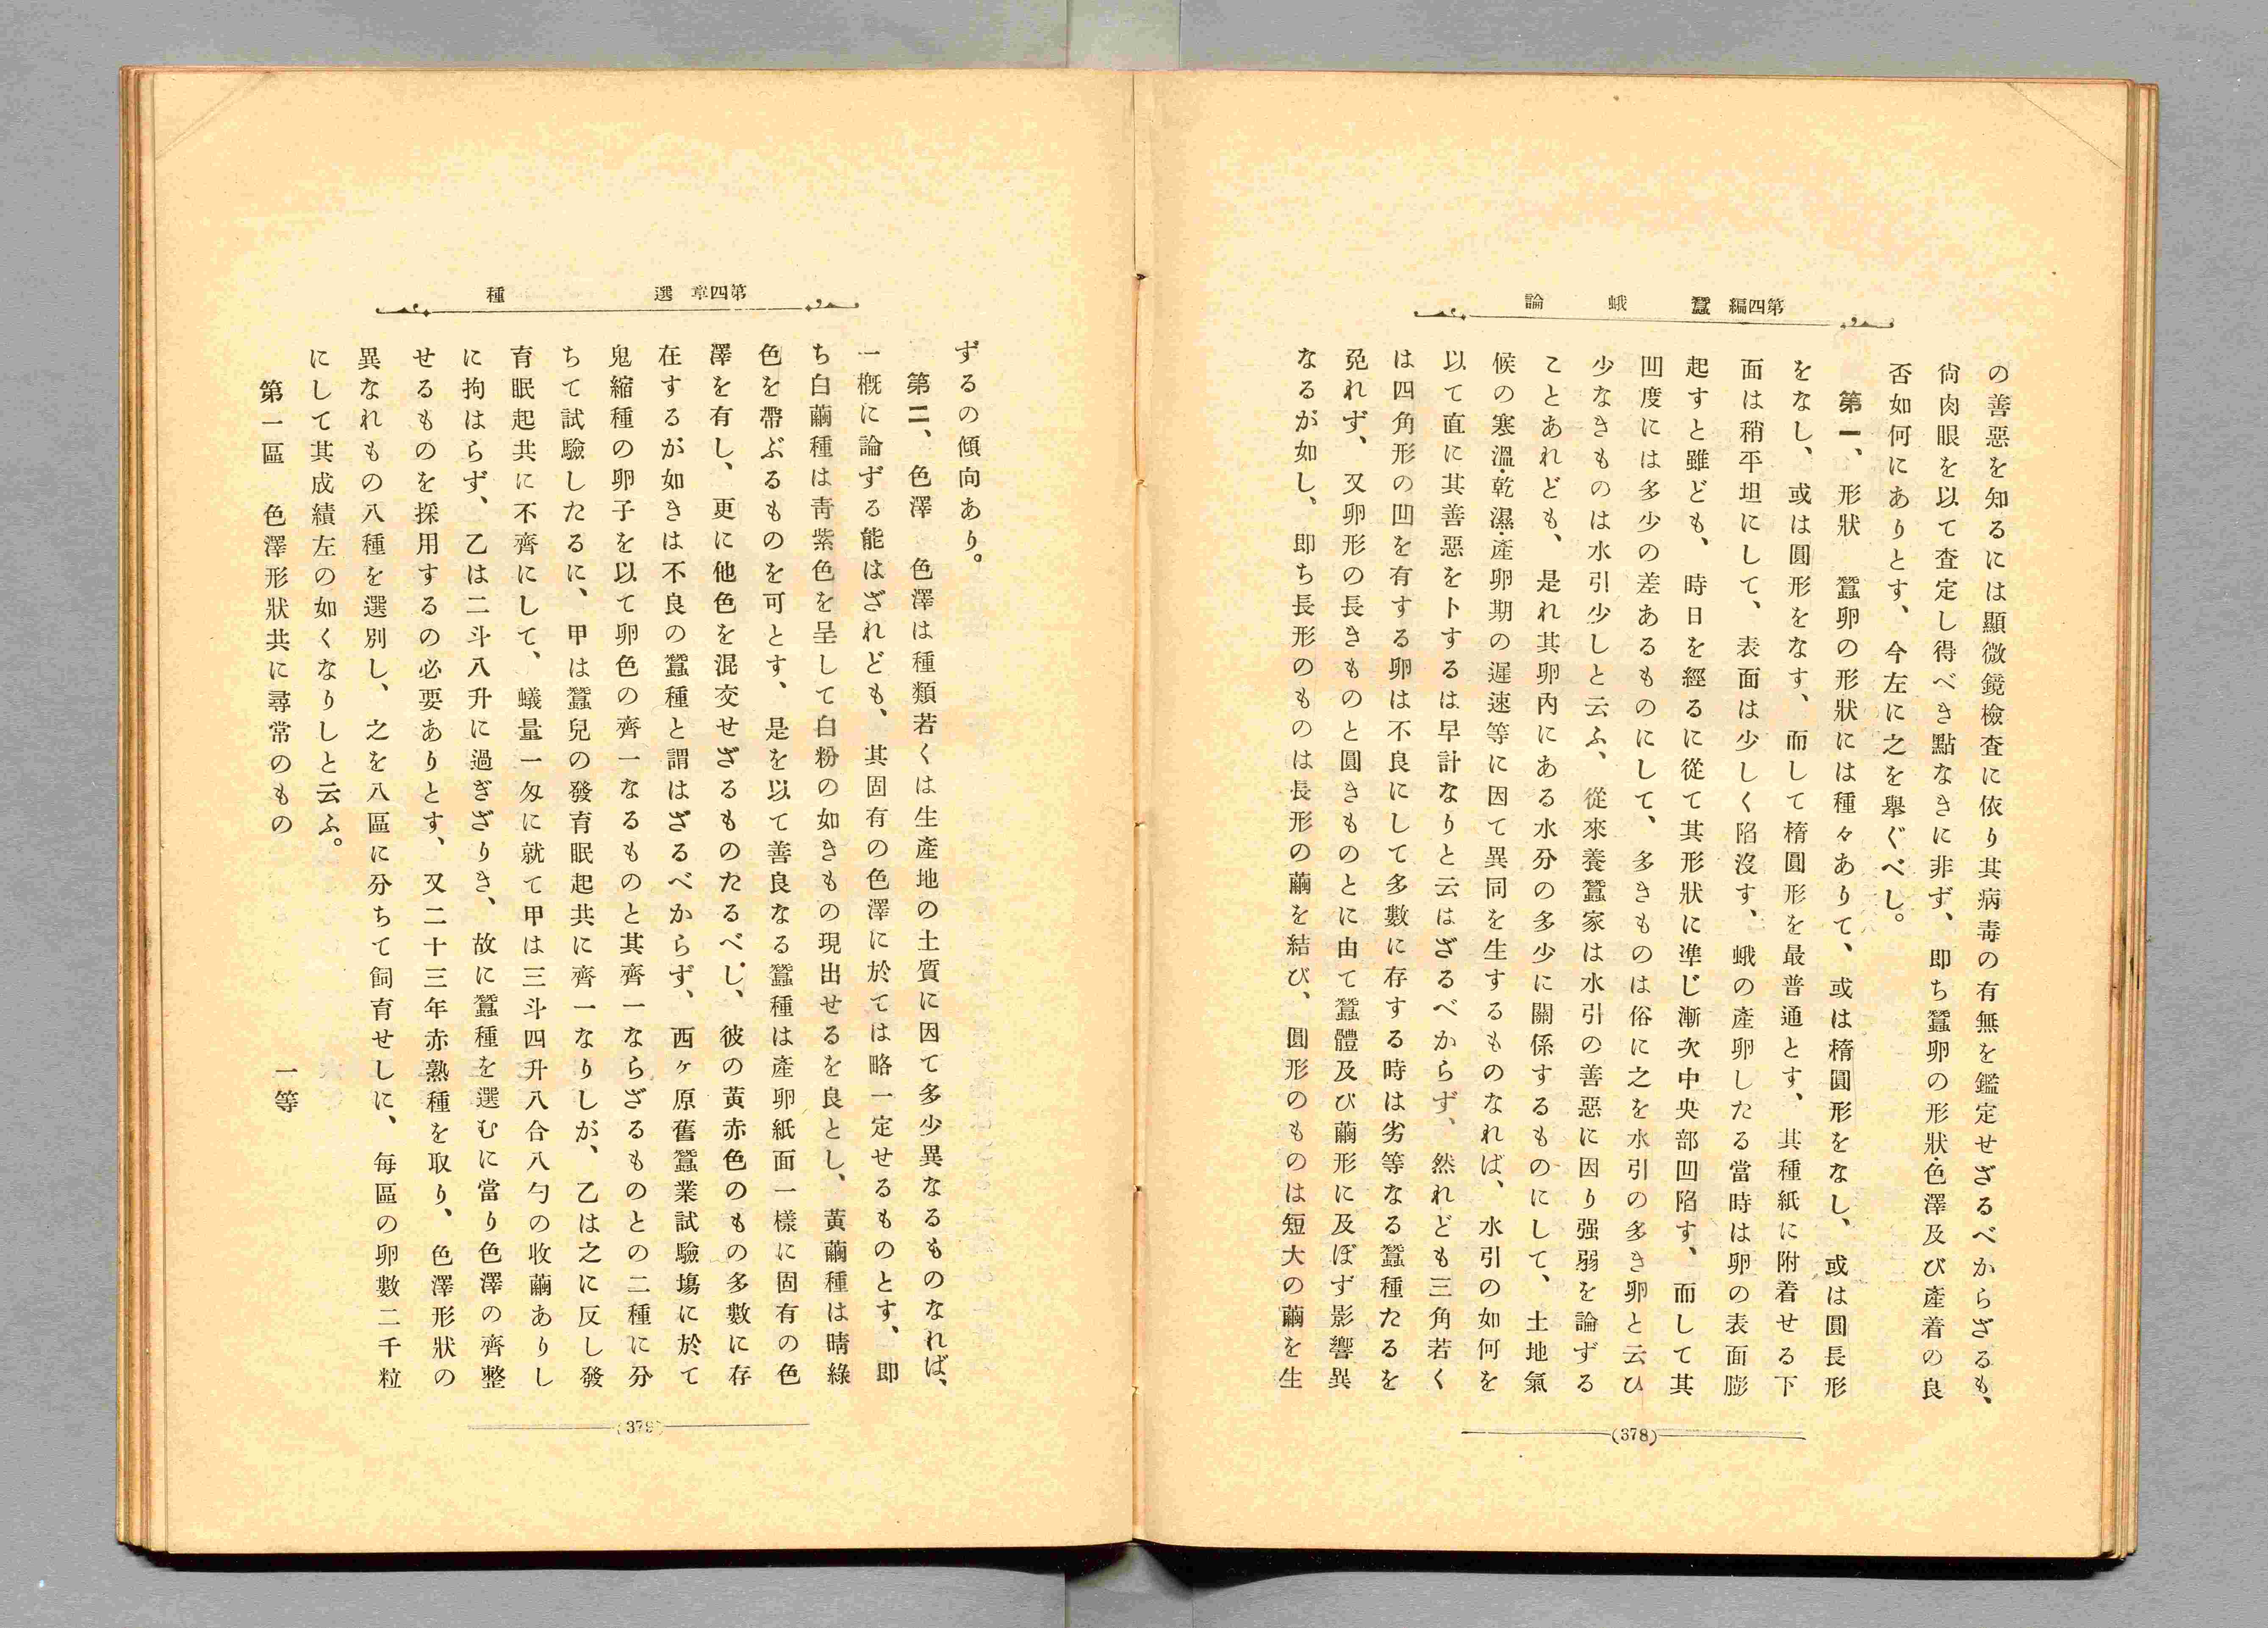 第四編 蠶蛾論
の善惡を知るには顯微鏡檢査に依り其病毒の有無を鑑定せざるべからざるも、
尙肉眼を以て査定し得べき點なきに非ず、卽ち蠶卵の形狀・色澤及び產着の良
否如何にありとす、今左に之を擧ぐべし。
第一、形狀　蠶卵の形狀には種々ありて、或は楕圓形をなし、或は圓長形
をなし、或は圓形をなす、而して楕圓形を最普通とす、其種紙に附着せる下
面は稍平坦にして、表面は少しく陷沒す、蛾の產卵したる當時は卵の表面膨
起すと雖ども、時日を經るに從て其形狀に準じ漸次中央部凹陷す、而して其
凹度には多少の差あるものにして、多きものは俗に之を水引の多き卵と云ひ
少なきものは水引少しと云ふ、從來養蠶家は水引の善惡に因り强弱を論ずる
ことあれども、是れ其卵內にある水分の多少に關係するものにして、土地氣
候の寒溫・乾濕・產卵期の遲速等に因て異同を生するものなれば、水引の如何を
以て直に其善惡を卜するは早計なりと云はざるべからず、然れども三角若く
は四角形の凹を有する卵は不良にして多數に存する時は劣等なる蠶種たるを
免れず、又卵形の長きものと圓きものとに由て蠶體及び繭形に及ぼす影響異
なるが如し、卽ち長形のものは長形の繭を結び、圓形のものは短大の繭を生
(378)
第四章 選種
ずるの傾向あり。
第二、色澤　色澤は種類若くは生產地の土質に因て多少異なるものなれば、
一槪に論ずる能はざれども、其固有の色澤に於ては略一定せるものとす、卽
ち白繭種は靑紫色を呈して白粉の如きもの現出せるを良とし、黃繭種は晴綠
色を帶ぶるものを可とす、是を以て善良なる蠶種は產卵紙面一樣に固有の色
澤を有し、更に他色を混交せざるものたるべし、彼の黃赤色のもの多數に存
在するが如きは不良の蠶種と謂はざるべからず、西ヶ原舊蠶業試驗塲に於て
鬼縮種の卵子を以て卵色の齊一なるものと其齊一ならざるものとの二種に分
ちて試驗したるに、甲は蠶兒の發育眠起共に齊一なりしが、乙は之に反し發
育眠起共に不齊にして、蟻量一匁に就て甲は三斗四升八合八勺の收繭ありし
に拘はらず、乙は二斗八升に過ぎざりき、故に蠶種を選むに當り色澤の齊整
せるものを採用するの必要ありとす、又二十三年赤熟種を取り、色澤形狀の
異なれもの八種を選別し、之を八區に分ちて飼育せしに、每區の卵數二千粒
にして其成績左の如くなりしと云ふ。
第一區　色澤形狀共に尋常のもの　一等
(379)